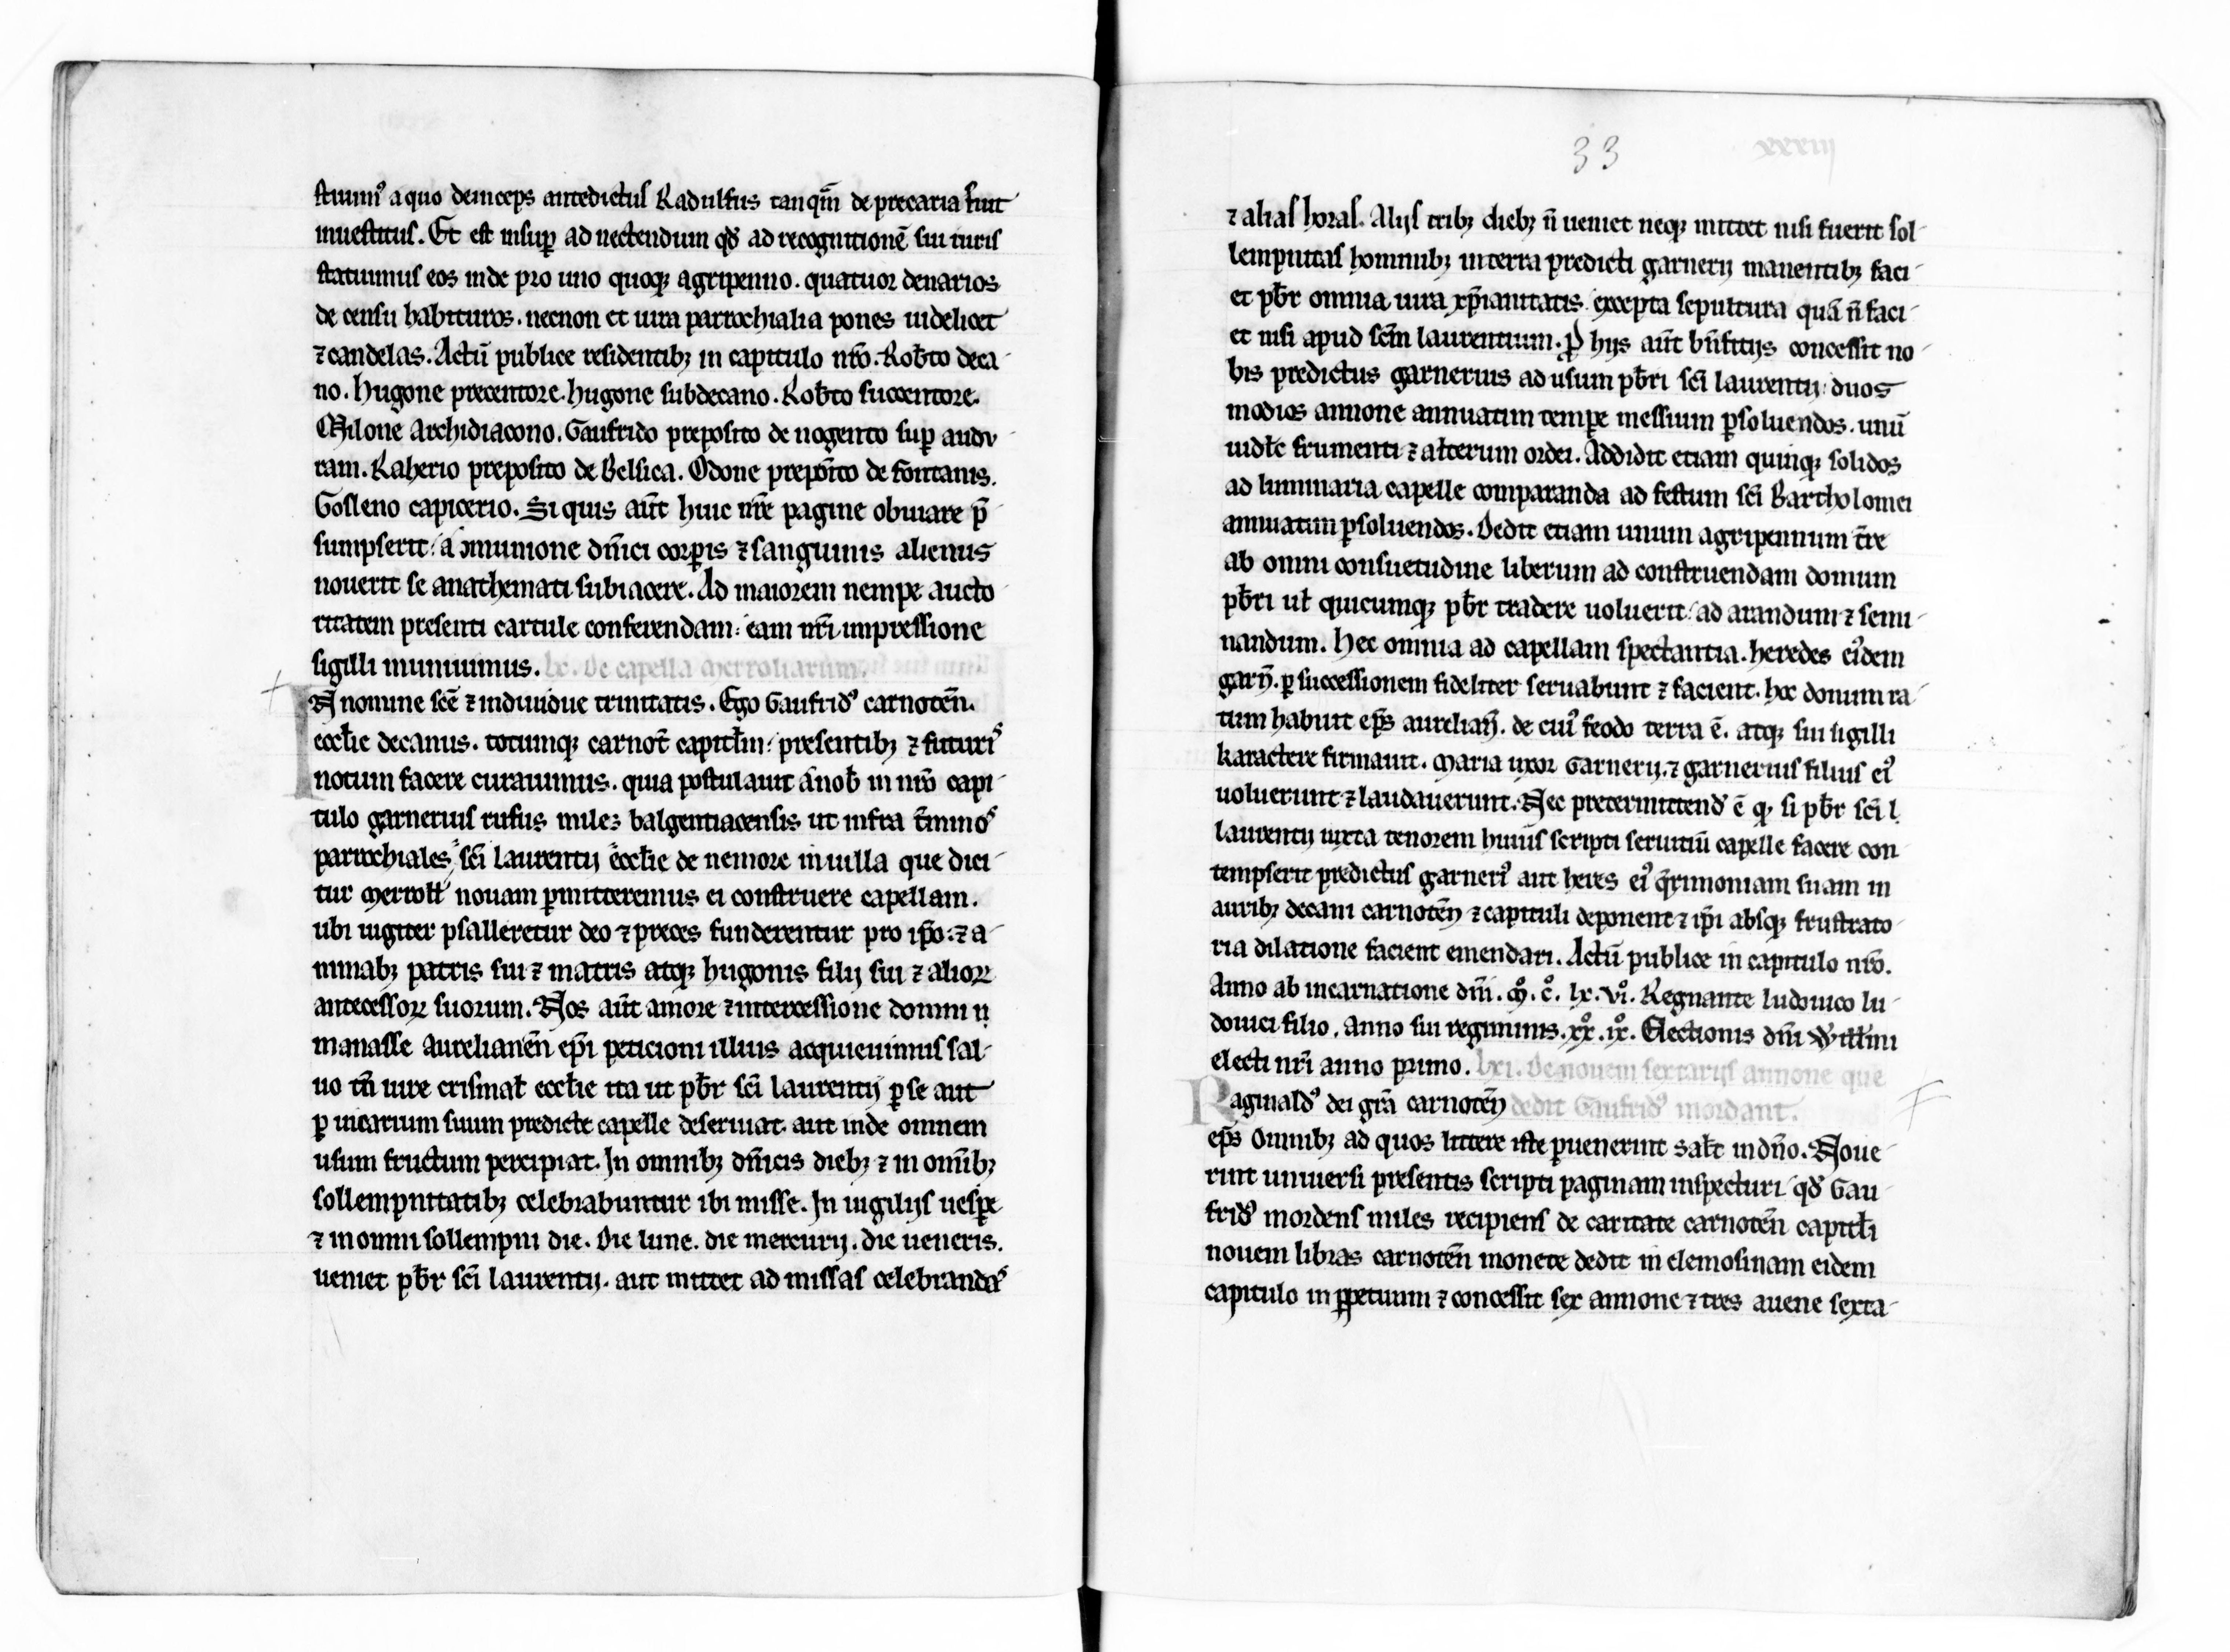 stuimꝰ a quo deinceps antedictus Radulfus tanqm̄ de precaria fuit
inuestitus. Et est insuꝑ ad nectendum qđ ad recognitionē sui iuris
statuimus eos inde pro uno quoqꝫ agripenno. quatuor denarios
de censu habituros. necnon et iura parrochialia panes uidelicet
⁊ candelas. Actū publice residentibꝫ in capitulo nr̄o. Rob̄to deca-
no. hugone precentore. hugone subdecano. Rob̄to succentore.
Milone Archidiacono. Gaufrido preposito de nogento suꝑ audu-
ram. Raherio preposito de Belsica. Odone prepōito de fontanis.
Gosleno capicerio. Si quis aūt huic nr̄e pagine obuiare p̄-
sumpserit: a ꝯmunione dn̄ici corꝑis ⁊ sanguinis alienus
nouerit se anathemati subiacere. Ad maiorem nempe aucto-
ritatem presenti cartule conferendam: eam nr̄i impressione
sigilli muniuimus. lx. De capella Merroliarum.
IN nomine sc̄e ⁊ indiuidue trinitatis. Ego Gaufridꝰ carnotēn.
eccl̄ie decanus. totumqꝫ carnot̄ capitl̄m: presentibꝫ ⁊ futuris
notum facere curauimus. quia postulauit a nob̄ in nr̄o capi-
tulo garnerius rufus miles balgentiacensis ut infra t̄minos
parrochiales sc̄i laurentij eccl̄ie de nemore in uilla que dici-
tur Merroll̄ nouam ꝑmitteremus ei construere capellam.
ubi iugiter psalleretur deo ⁊ preces funderentur pro ip̄o: ⁊ a-
nimabꝫ patris sui ⁊ matris atqꝫ hugonis filij sui ⁊ alioꝝ
antecessoꝝ suorum. Nos aūt amore ⁊ intercessione domni n̄
manasse Aurelianēn ep̄i peticioni illius acquieuimus sal-
uo tn̄ iure crismat̄ eccl̄ie ita ut pb̄r sc̄i laurentij ꝑ se aut
ꝑ uicarium suum predicte capelle deseruiat. aut inde omnem
usum fructum percipiat. In omnibꝫ dn̄icis diebꝫ ⁊ in om̄ibꝫ
sollempnitatibꝫ celebrabuntur ibi misse. In uigilijs uesꝑe
⁊ in omni sollempni die. Die lune. die mercurij. die ueneris.
ueniet pb̄r sc̄i laurentij. aut mittet ad missas celebrandas
33
xxxiij
⁊ alias horas. Alijs tribꝫ diebꝫ n̄ ueniet neqꝫ mittet nisi fuerit sol-
lempnitas hominibꝫ in terra predicti garnerij manentibꝫ faci-
et pb̄r omnia iura xp̄ianitatis excepta sepultura quā n̄ faci-
et nisi apud sc̄m laurentium. ꝓ hijs aūt bn̄ficijs concessit no-
bis predictus garnerius ad usum pb̄ri sc̄i laurentij: duos
modios annone annuatim temꝑe messium ꝑsoluendos. unū
uidl̄c frumenti ⁊ alterum ordei. Addidit etiam quinqꝫ solidos
ad luminaria capelle comparanda ad festum sc̄i Bartholomei
annuatim ꝑsoluendos. Dedit etiam unum agripennum t̄re
ab omni consuetudine liberum ad construendam domum
pb̄ri ul̄ quicumqꝫ pb̄r tradere uoluerit: ad arandum ⁊ semi-
nandum. Hec omnia ad capellam spectantia. heredes eiꝰdem
garn̄. ꝑ successionem fideliter seruabunt ⁊ facient. hoc donum ra-
tum habuit ep̄s aurelian̄. de cuiꝰ feodo terra ē. atqꝫ sui sigilli
karactere firmauit. Maria uxor Garnerij. ⁊ garnerius filius eiꝰ
uoluerunt ⁊ laudauerunt. Nec pretermittendꝰ ē qꝫ si pb̄r sc̄i l
laurentij iuxta tenorem huius scripti seruitiū capelle facere con-
tempserit predictus garneriꝰ aut heres eiꝰ q̄rimoniam suam in
auribꝫ decani carnotēn ⁊ capituli deponent ⁊ ip̄i absqꝫ frustrato-
ria dilatione facient emendari. Actū publice in capitulo nr̄o.
Anno ab incarnatione dn̄i. M̊. C̊. lx. vi̊. Regnante ludouico lu-
douici filio. Anno sui regiminis. xx̊. ix̊. Electionis dn̄i Willl̄mi
electi nr̄i anno primo. lxi. De nouem sextarijs annone que
Raginaldꝰ dei gr̄a carnotēn dedit Gaufridꝰ mordant.
ep̄s Omnibꝫ ad quos littere iste ꝑuenerint sal̄t in dn̄o. Noue-
rint uniuersi presentis scripti paginam inspecturi qđ Gau-
fridꝰ mordens miles recipiens de caritate carnotēn capitl̄i
nouem libras carnotēn monete dedit in elemosinam eidem
capitulo in ꝑpetuum ⁊ concessit sex annone ⁊ tres auene sexta-